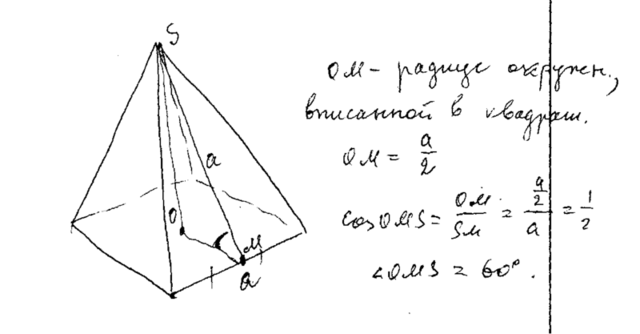 S
a
O
M
a
OM - радиус окружен.,
вписанной в квадрат.
OM = a/2
cos OMS = OM/SM = (a/2)/a = 1/2
∠OMS = 60°.